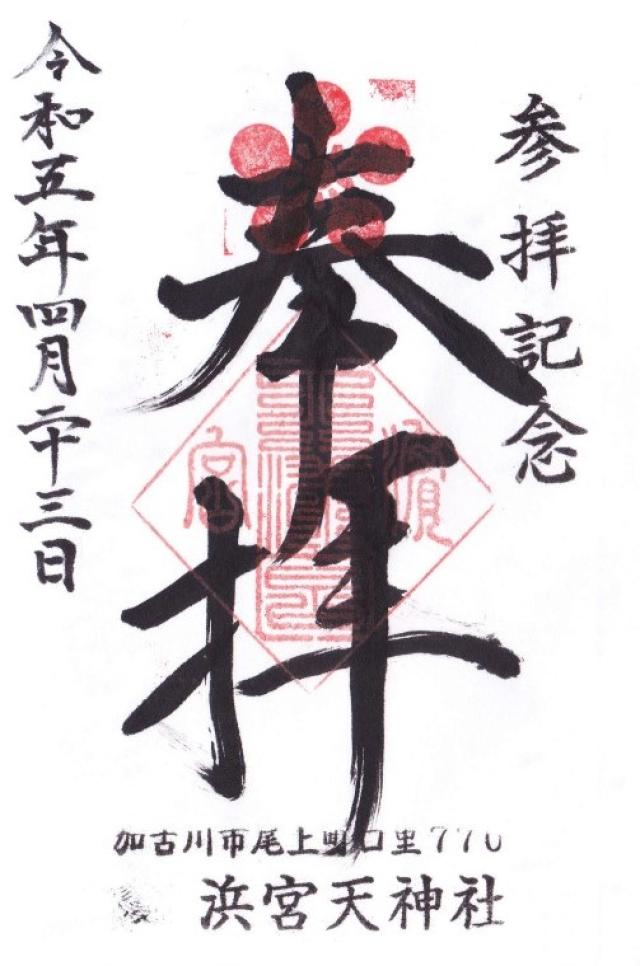 参拝記念
奉拝
濱
宮
令和五年四月二十三日
加古川市尾上町口里770
浜宮天神社